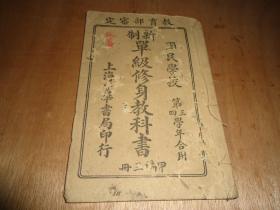 教育部審定
新制
國民學校
單級修身教科書
第三四學年合用
甲編三冊
上海中華書局印行